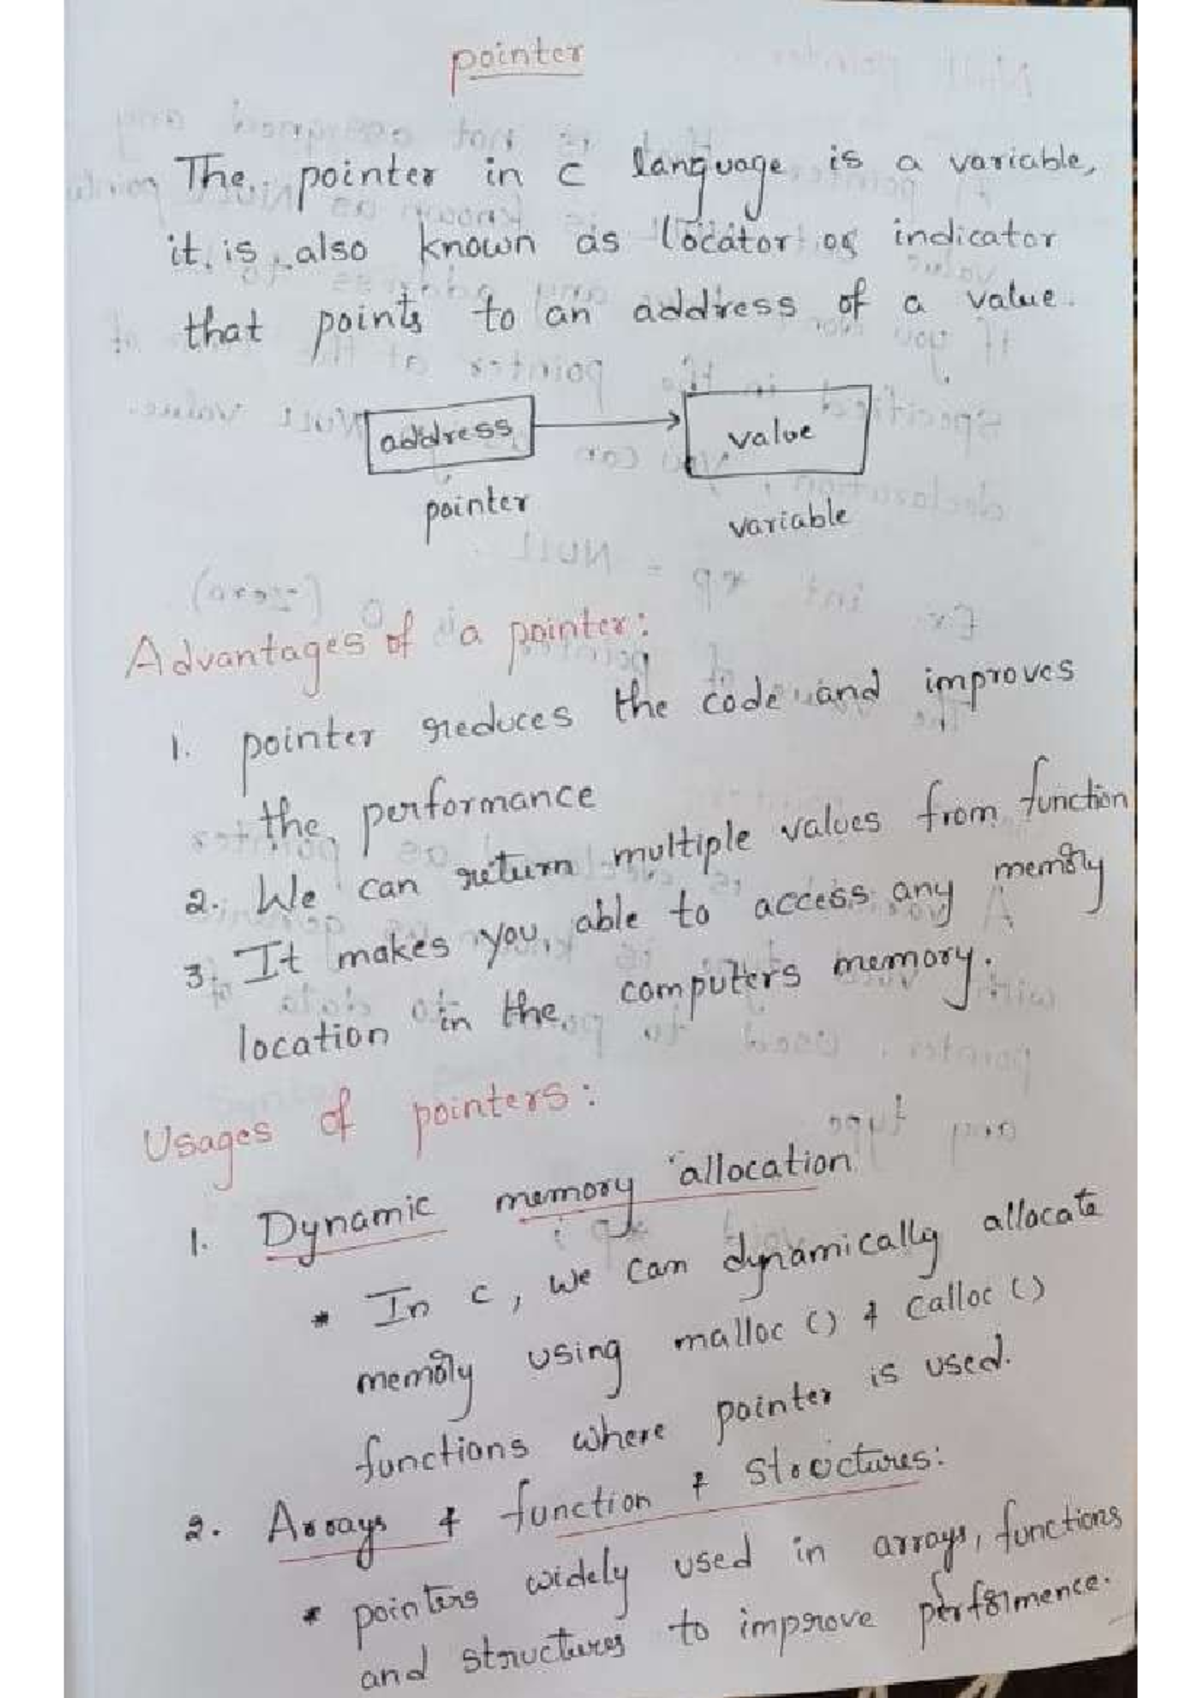 pointer
The pointer in C language is a variable,
it is also known as locator or indicator
that points to an address of a value.
address
value
pointer
variable
Advantages of a pointer:
1. pointer reduces the code and improves
the performance
2. We can return multiple values from function
3. It makes you able to access any memory
location in the computers memory.
Usages of pointers:
1. Dynamic memory allocation
* In c, we can dynamically allocate
memory using malloc () & calloc ()
functions where pointer is used.
2. Arrays & function & structures:
* pointers widely used in arrays, functions
and structures to improve performence.